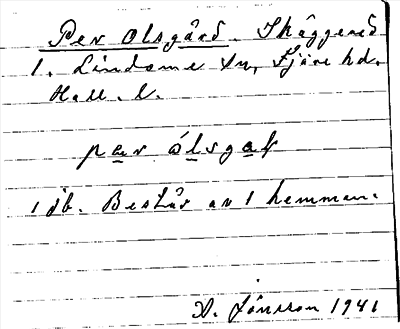 Per Olsgård. Skäggered
1. Lindome sn, Fjäre hd.
Hall. l.
par ólsgaṣ
1 jb. Består av 1 hemman.
D. Jönsson 1941